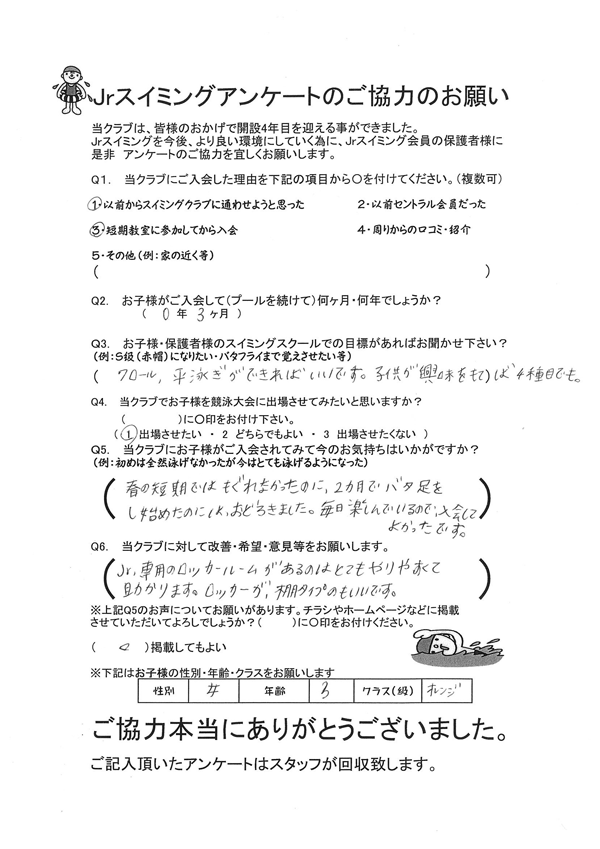 Jrスイミングアンケートのご協力のお願い
当クラブは、皆様のおかげで開設4年目を迎える事ができました。
Jrスイミングを今後、より良い環境にしていく為に、Jrスイミング会員の保護者様に
是非 アンケートのご協力を宜しくお願いします。
Q1. 当クラブにご入会した理由を下記の項目から○を付けてください。(複数可)
1・以前からスイミングクラブに通わせようと思った 2・以前セントラル会員だった
3・短期教室に参加してから入会 4・周りからの口コミ・紹介
5・その他(例:家の近く等)
( )
Q2. お子様がご入会して(プールを続けて)何ヶ月・何年でしょうか?
( 0 年 3 ヶ月 )
Q3. お子様・保護者様のスイミングスクールでの目標があればお聞かせ下さい?
(例:S級(赤帽)になりたい・バタフライまで覚えさせたい等)
( クロール、平泳ぎができればいいです。子供が興味をもて)ば4種目でも。
Q4. 当クラブでお子様を競泳大会に出場させてみたいと思いますか?
( )に○印をお付け下さい。
( 1 出場させたい ・ 2 どちらでもよい ・ 3 出場させたくない )
Q5. 当クラブにお子様がご入会されてみて今のお気持ちはいかがですか?
(例:初めは全然泳げなかったが今はとても泳げるようになった)
春の短期ではもぐれなかったのに、2カ月でバタ足を
し始めたのには、おどろきました。毎日楽しんでいるので、入会して
よかったです。
Q6. 当クラブに対して改善・希望・意見等をお願いします。
Jr.専用のロッカールームがあるのはとてもやりやすくて
助かります。ロッカーが、棚タイプのもいいです。
※上記Q5のお声についてお願いがあります。チラシやホームページなどに掲載
させていただいてよろしでしょうか?( )に○印をお付けください。
( ○ )掲載してもよい
※下記はお子様の性別・年齢・クラスをお願いします
性別 女 年齢 3 クラス(級) オレンジ
ご協力本当にありがとうございました。
ご記入頂いたアンケートはスタッフが回収致します。